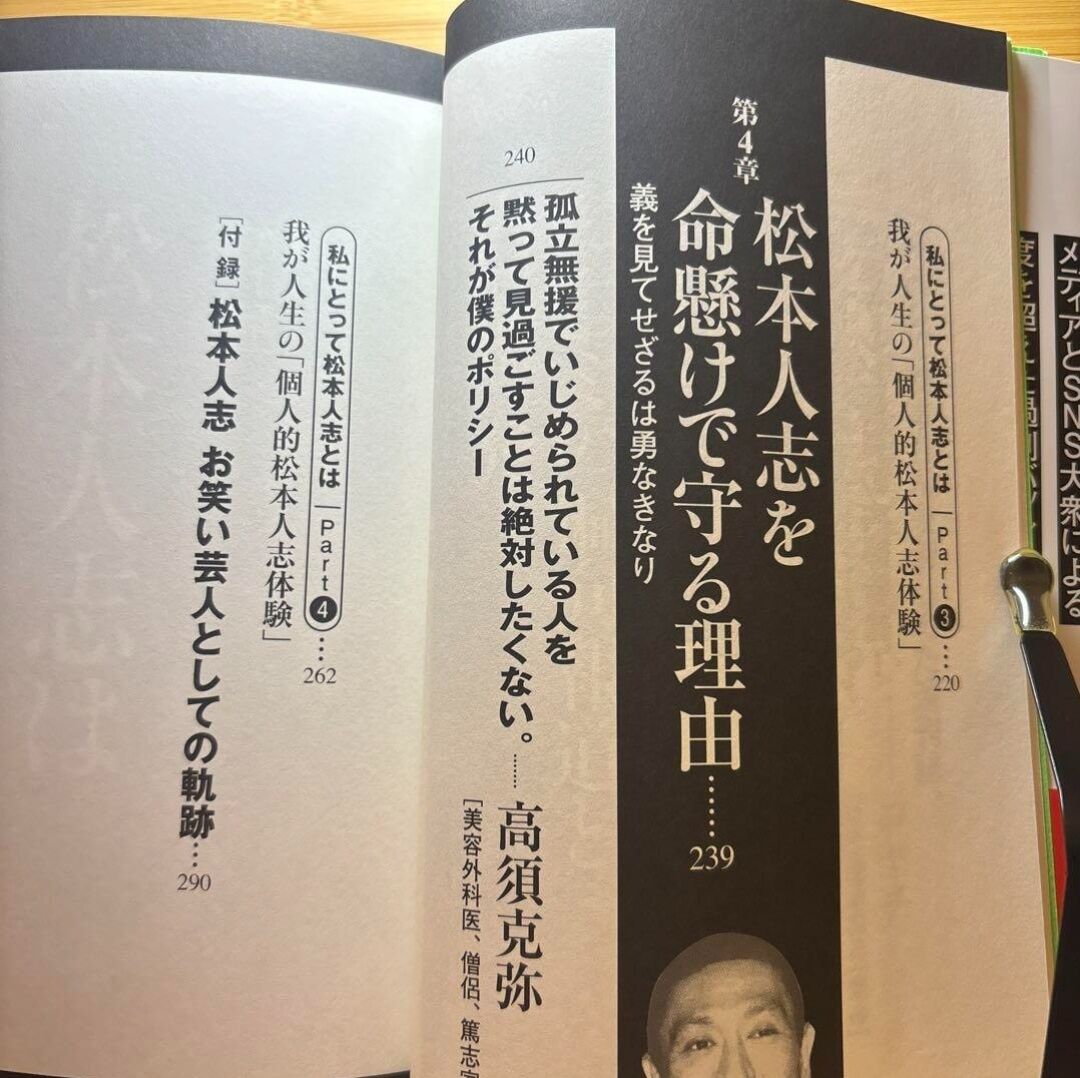 メディアとSNS大衆による
私にとって松本人志とは Part❸……220
我が人生の「個人的松本人志体験」
第4章
松本人志を
命懸けで守る理由……239
義を見てせざるは勇なきなり
240
孤立無援でいじめられている人を
黙って見過ごすことは絶対したくない。……高須克弥
それが僕のポリシー
[美容外科医、僧侶、篤志家
私にとって松本人志とは Part❹…262
我が人生の「個人的松本人志体験」
[付録]松本人志 お笑い芸人としての軌跡…290